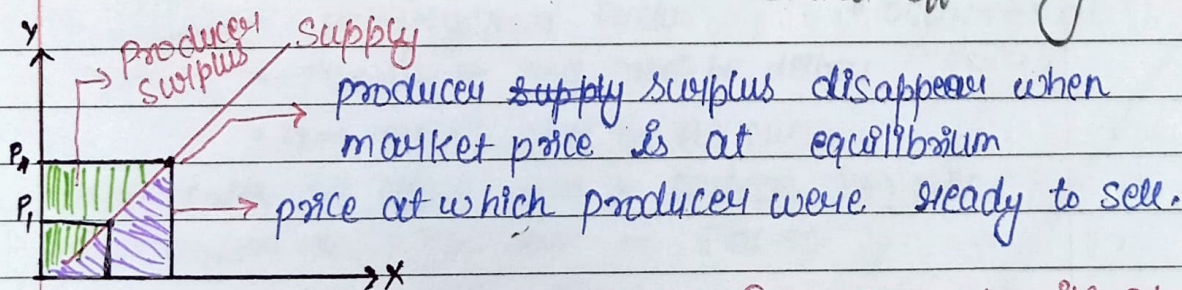 Y
producer
surplus
supply
producer supply surplus disappear when
market price is at equilibrium
P
P1
price at which producer were ready to sell.
X